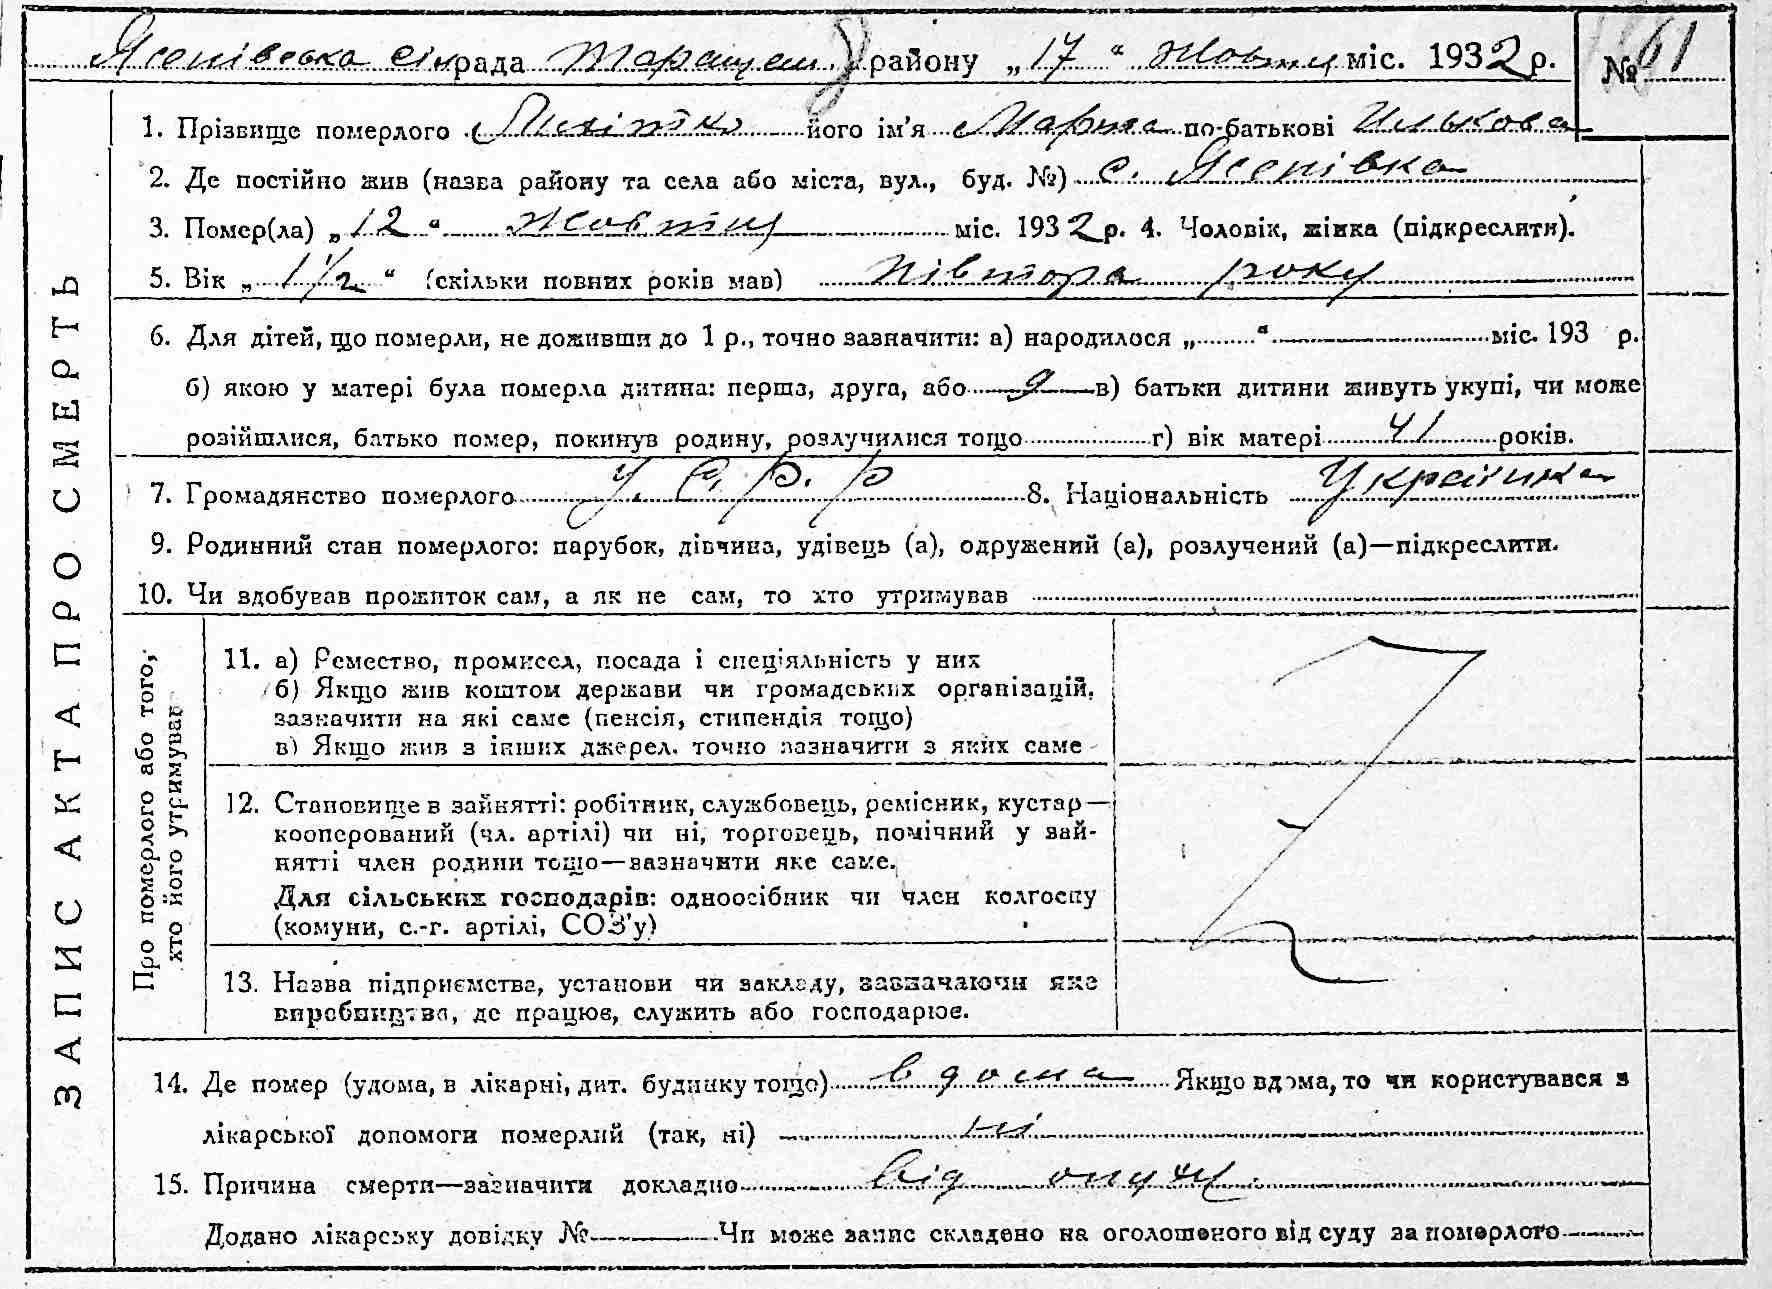 Ясенівська сільрада Таращан. району „17“ Жовтня міс. 1932 р. № 61
1. Прізвище померлого його ім'я Марта по-батькові Илькова
2. Де постійно жив (назва району та села або міста, вул., буд. №) с. Ясенівка
3. Помер(ла) „12“ Жовтня міс. 1932 р. 4. Чоловік, жінка (підкреслити).
5. Вік „1 1/2“ (скільки повних років мав) півтора року
6. Для дітей, що померли, не доживши до 1 р., точно зазначити: а) народилося „ “ міс. 193 р.
б) якою у матері була померла дитина: перша, друга, або 9 в) батьки дитини живуть укупі, чи може
розійшлися, батько помер, покинув родину, розлучилися тощо г) вік матері 41 років.
7. Громадянство померлого У. С. Р. Р 8. Національність Українка
9. Родинний стан померлого: парубок, дівчина, удівець (а), одружений (а), розлучений (а)—підкреслити.
10. Чи здобував прожиток сам, а як не сам, то хто утримував
ЗАПИС АКТА ПРО СМЕРТЬ
Про померлого або того,
хто його утримував
11. а) Ремество, промисел, посада і спеціяльність у них
б) Якщо жив коштом держави чи громадських організацій,
зазначити на які саме (пенсія, стипендія тощо)
в) Якщо жив з інших джерел, точно зазначити з яких саме
12. Становище в зайнятті: робітник, службовець, ремісник, кустар—
кооперований (чл. артілі) чи ні, торговець, помічний у зай-
нятті член родини тощо—зазначити яке саме.
Для сільських господарів: одноосібник чи член колгоспу
(комуни, с.-г. артілі, СОЗ'у)
13. Назва підприємства, установи чи закладу, зазначаючи яке
виробництво, де працює, служить або господарює.
14. Де помер (удома, в лікарні, дит. будинку тощо) вдома Якщо вдома, то чи користувався з
лікарської допомоги померлий (так, ні) ні
15. Причина смерти—зазначити докладно від
Додано лікарську довідку № Чи може запис складено на оголошеного від суду за померлого